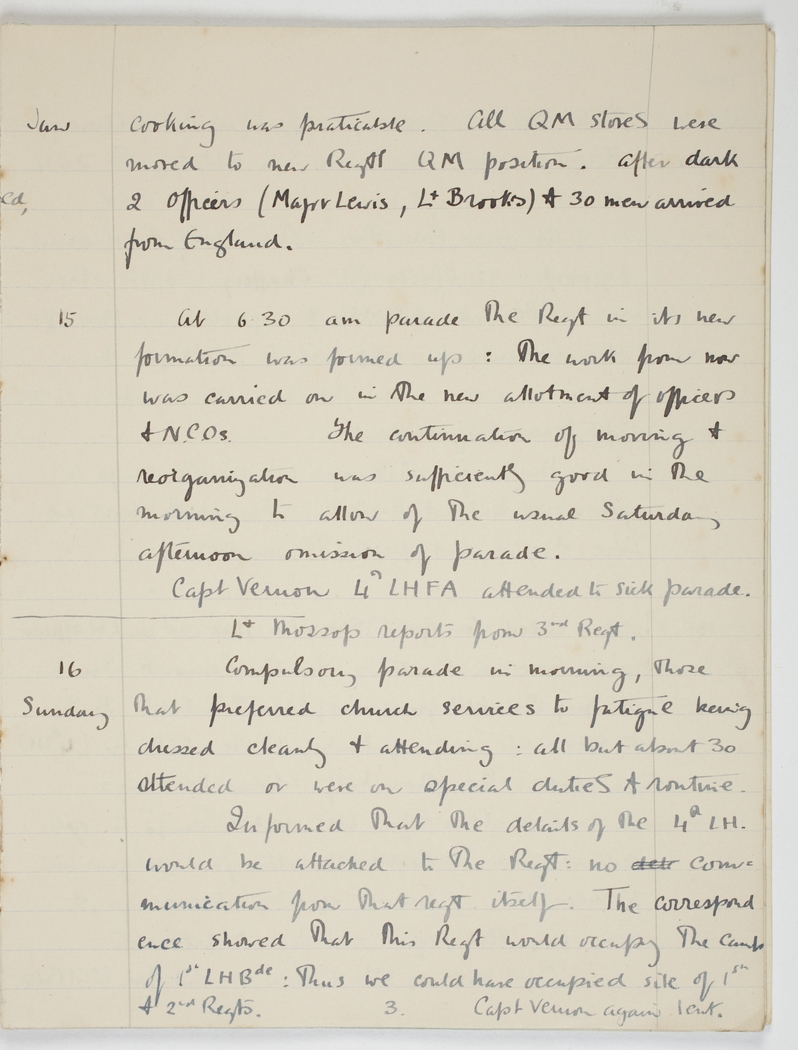 Jan cooking was praticable. All QM stores were
moved to new Regtl QM position. After dark
ed, 2 Officers (Major Lewis, Lt Brooks) & 30 men arrived
from England.
15 At 6 30 am parade the Regt in its new
formation was formed up : The work from now
was carried on in the new allotment of officers
& N.C.Os. The continuation of moving &
reorganization was sufficiently good in the
morning to allow of the usual Saturday
afternoon omission of parade.
Capt Vernon 4th LHFA attended to sick parade.
Lt Mossop reports from 3rd Regt.
16 Compulsory parade in morning, those
Sunday that preferred church services to fatigue being
dressed cleanly & attending : all but about 30
attended or were on special duties & routine.
Informed that the details of the 4th LH.
would be attached to the Regt: no detr com=
munication from that regt itself. The correspond
ence showed that this Regt would occupy the camp
of 1st LHBde : Thus we could have occupied site of 1st
& 2nd Regts. 3. Capt Vernon again lent.